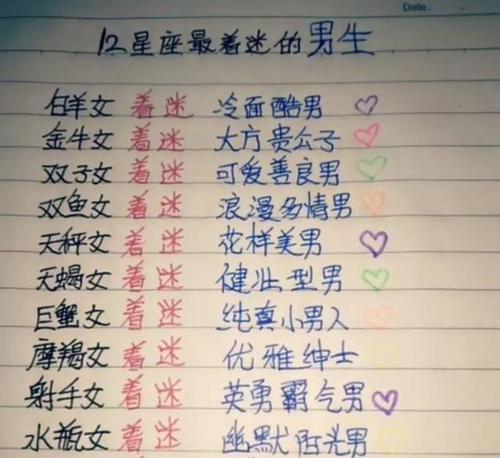 Date.
12星座最着迷的男生
白羊女 着迷 冷面酷男
金牛女 着迷 大方贵公子
双子女 着迷 可爱善良男
双鱼女 着迷 浪漫多情男
天秤女 着迷 花样美男
天蝎女 着迷 健壮型男
巨蟹女 着迷 纯真小男人
摩羯女 着迷 优雅绅士
射手女 着迷 英勇霸气男
水瓶女 着迷 幽默阳光男